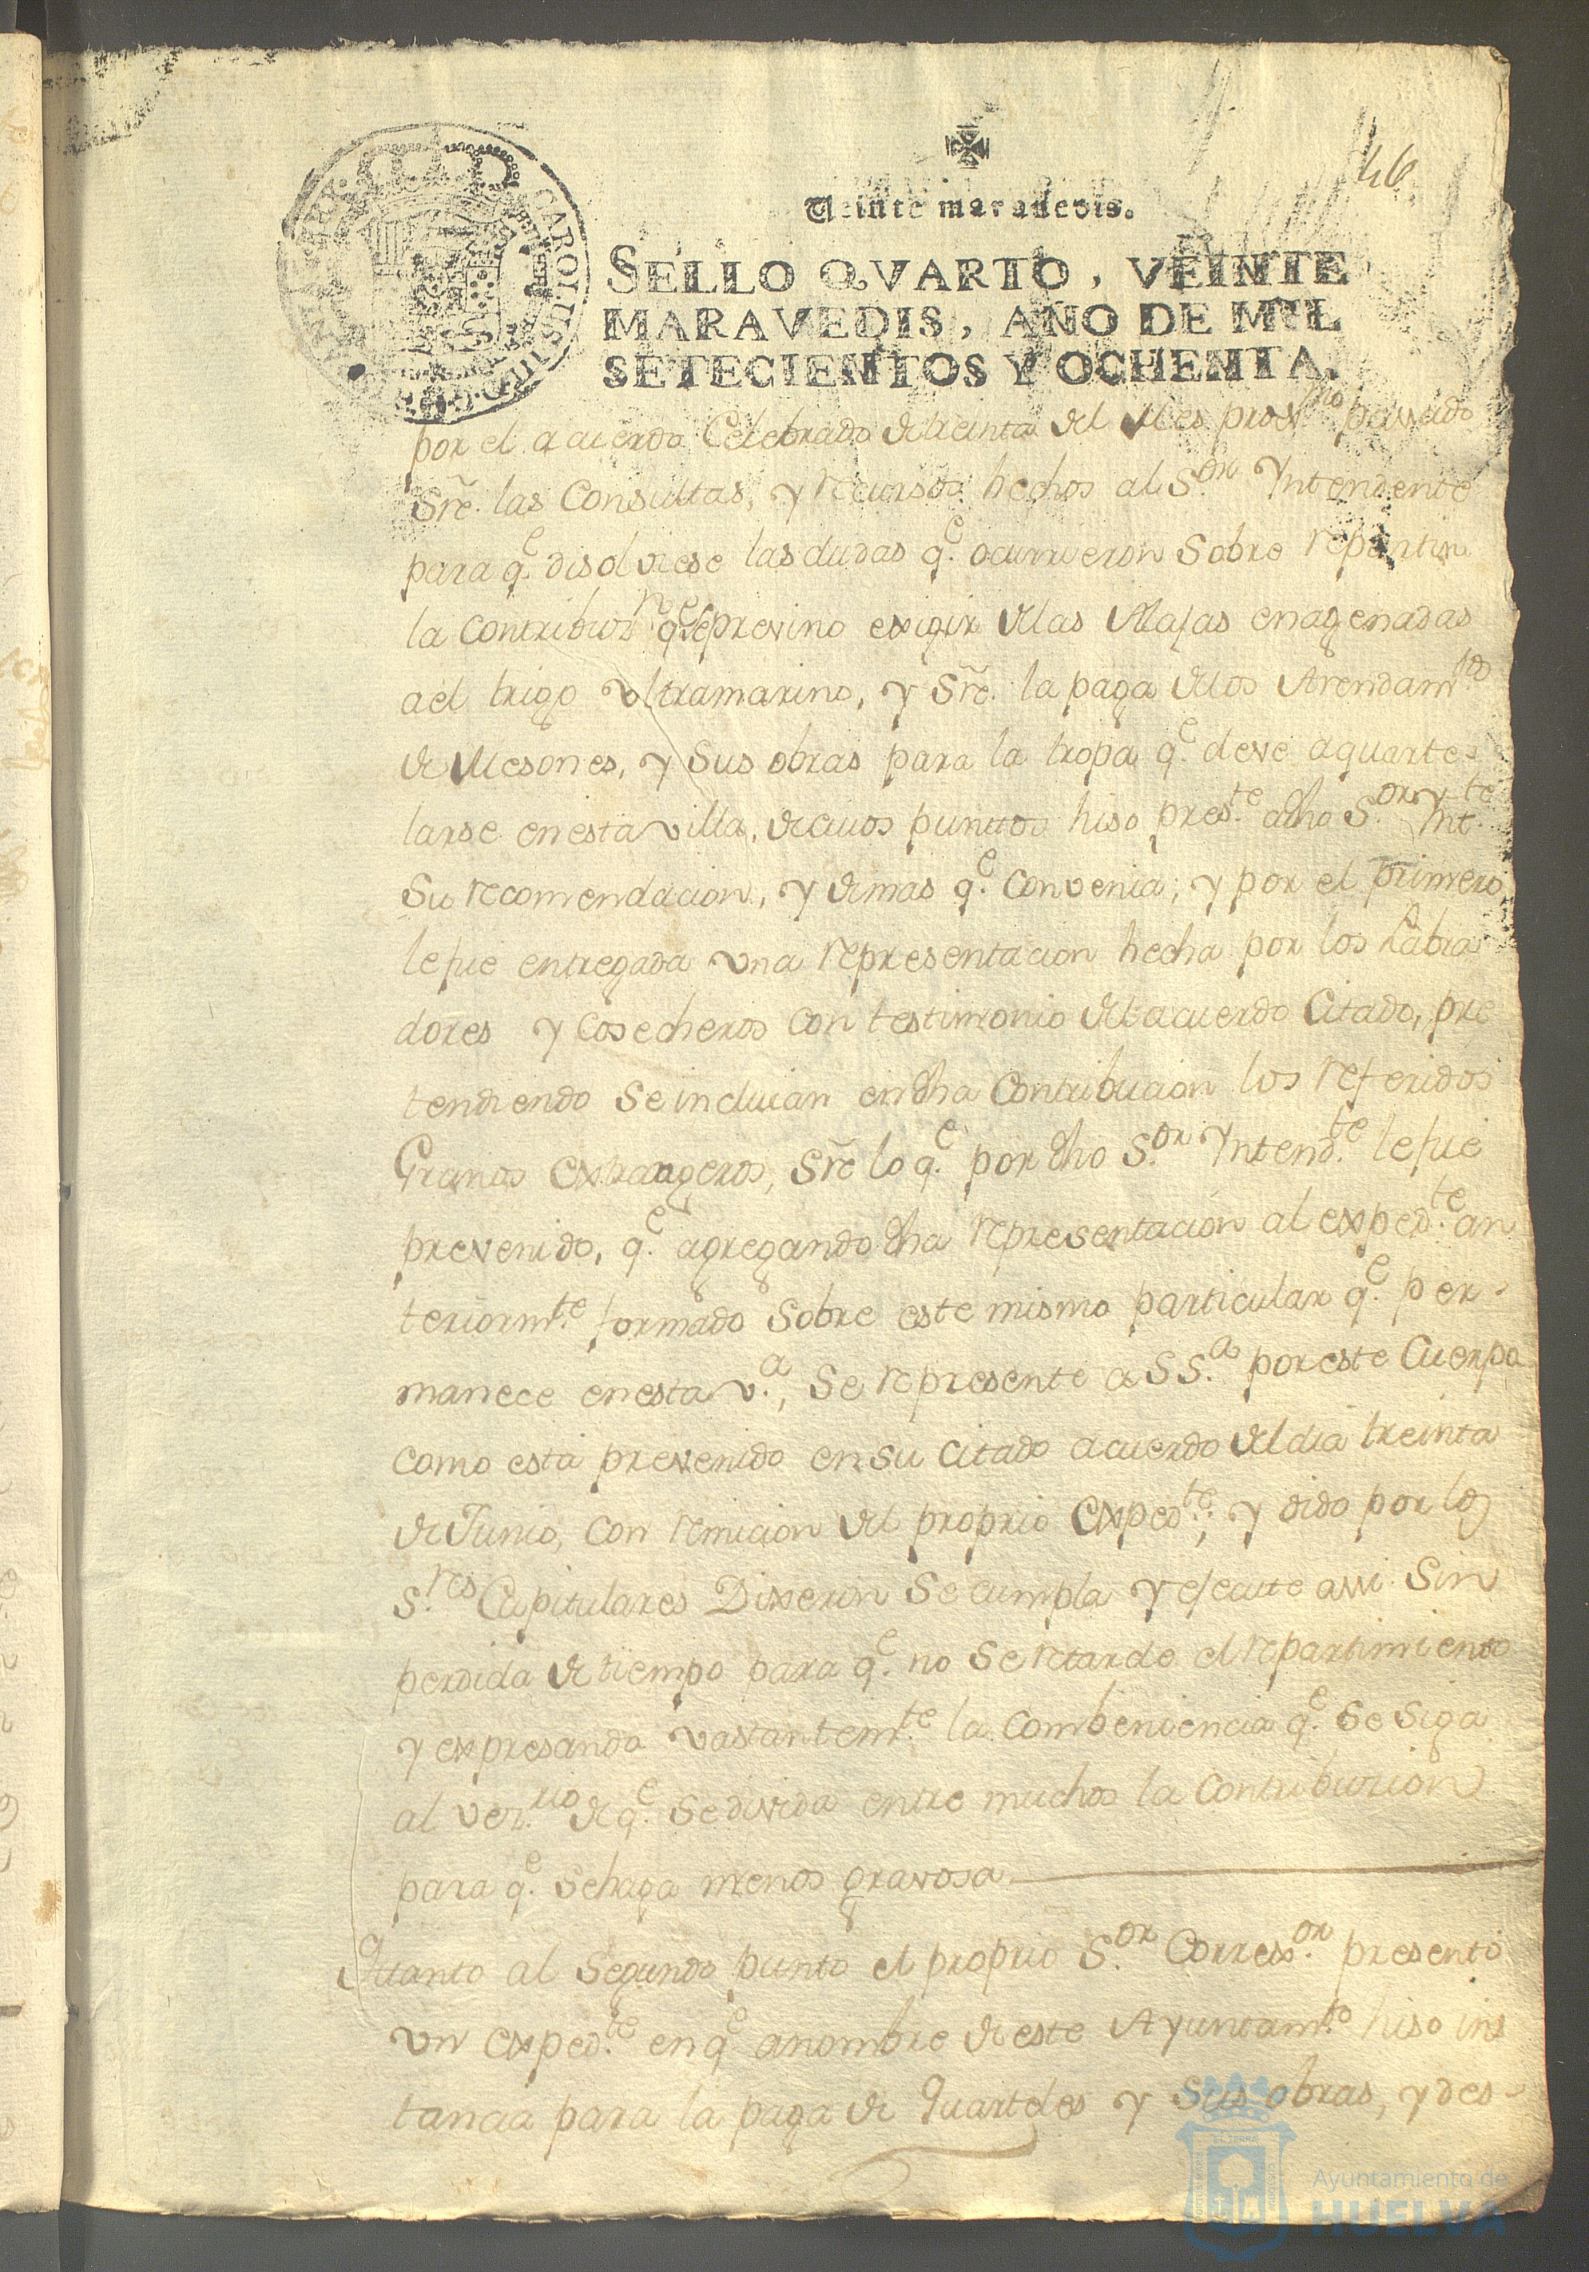 46
Veinte maravedis.
SELLO QVARTO, VEINTE
MARAVEDIS, AÑO DE MIL
SETECIENTOS Y OCHENTA.
CAROLUS III D.G.
por el acuerdo Celebrado de treinta del Mes proxmo passado
Sre. las Consultas, y recursos hechos al S.or Yntendente
para q.e disolviese las dudas q.e ocurrieron Sobre repartir
la Contribuzn q.e se previno exigir de las Alajas enagenadas
a el trigo Vltramarino, y Sre. la paga de los Arendam.tos
de Mesones, y Sus obras para la tropa q.e deve aquarte-
larse en esta villa, de cuios punttos hiso pres.te a dho S.or Ynt.te
Su recomendacion, y demas q.e convenia; y por el primero
le fue entregada una representacion hecha por los Labra
dores y Cosecheros con testimonio del acuerdo Citado, pre
tendiendo se incluian en dha Contribucion los referidos
Granos Extrangeros, Sre lo q.e por dho S.or Yntend.te le fue
prevenido, q.e agregando dha representacion al exped.te an
teriorm.te formado Sobre este mismo particular q.e per-
manece en esta v.a, Se represente a SS.a por este Cuerpo
como está prevenido en su Citado acuerdo del dia treinta
de Junio, con remicion del proprio Exped.te; y oido por los
S.res Capitulares Dixeron Se cumpla y execute assi Sin
perdida de tiempo para q.e no Se retarde el repartimiento
y expresando vastantem.te la Combeniencia q.e Se Siga
al Vez.rio de q.e Se divida entre muchos la Contribucion
para q.e se haga menos gravosa.
Quanto al Segundo punto el proprio S.or Correx.or presentó
un exped.te en q.e a nombre de este Ayuntam.to hiso ins
tancia para la paga de Quarteles y Sus obras, y des-
Ayuntamiento de
HUELVA